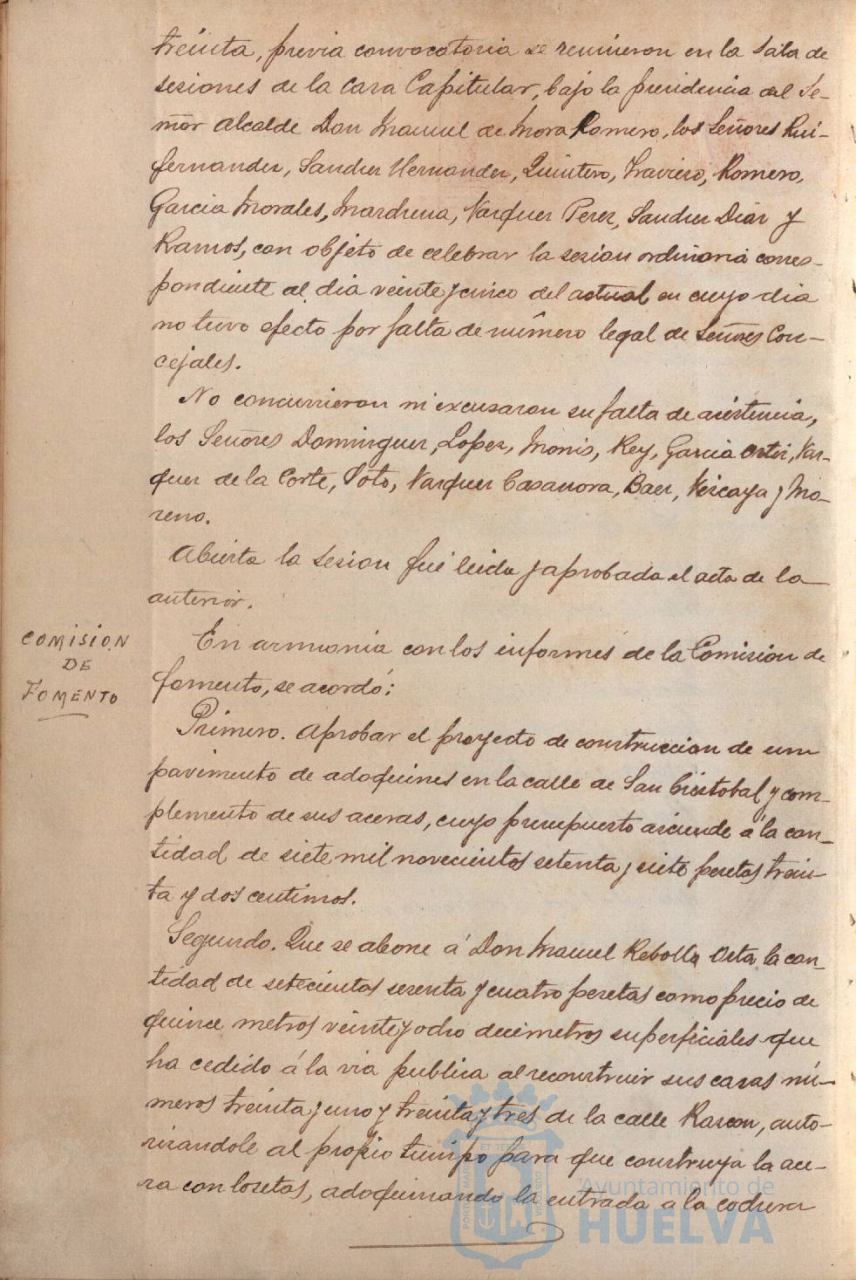 treinta, previa convocatoria se reunieron en la Sala de
sesiones de la Casa Capitular, bajo la presidencia del Se-
ñor Alcalde Don Manuel de Mora Romero, los Señores Rui-
fernandez, Sanchez Hernandez, Quintero, Traviero, Romero,
Garcia Morales, Mardrena, Vazquez Perez, Sanchez Diaz y
Ramos, con objeto de celebrar la sesion ordinaria corres-
pondiente al dia veinte y cinco del actual en cuyo dia
no tuvo efecto por falta de número legal de Señores Con-
cejales.
No concurrieron ni excusaron su falta de asistencia,
los Señores Dominguez, Lopez, Monis, Rey, Garcia Ortiz, Vaz-
quez de la Corte, Soto, Vazquez Casanova, Baez, Vizcaya y Mo-
reno.
Abierta la Sesion fué leida y aprobada el acta de la
anterior.
COMISION
DE
FOMENTO
En armonia con los informes de la Comision de
fomento, se acordó:
Primero. Aprobar el proyecto de construccion de un
pavimento de adoquines en la calle de San Cristobal y com-
plemento de sus aceras, cuyo presupuesto asciende á la can-
tidad de siete mil novecientos setenta y siete pesetas trein-
ta y dos centimos.
Segundo. Que se abone á Don Manuel Rebollo Orta la can-
tidad de setecientas sesenta y cuatro pesetas como precio de
quince metros veinte y ocho decimetros superficiales que
ha cedido á la via publica al reconstruir sus casas nú-
meros treinta y uno y treinta y tres de la calle Rascon, auto-
rizandole al propio tiempo para que construya la ace-
ra con losetas, adoquinando la entrada a la cochera
Ayuntamiento de
HUELVA